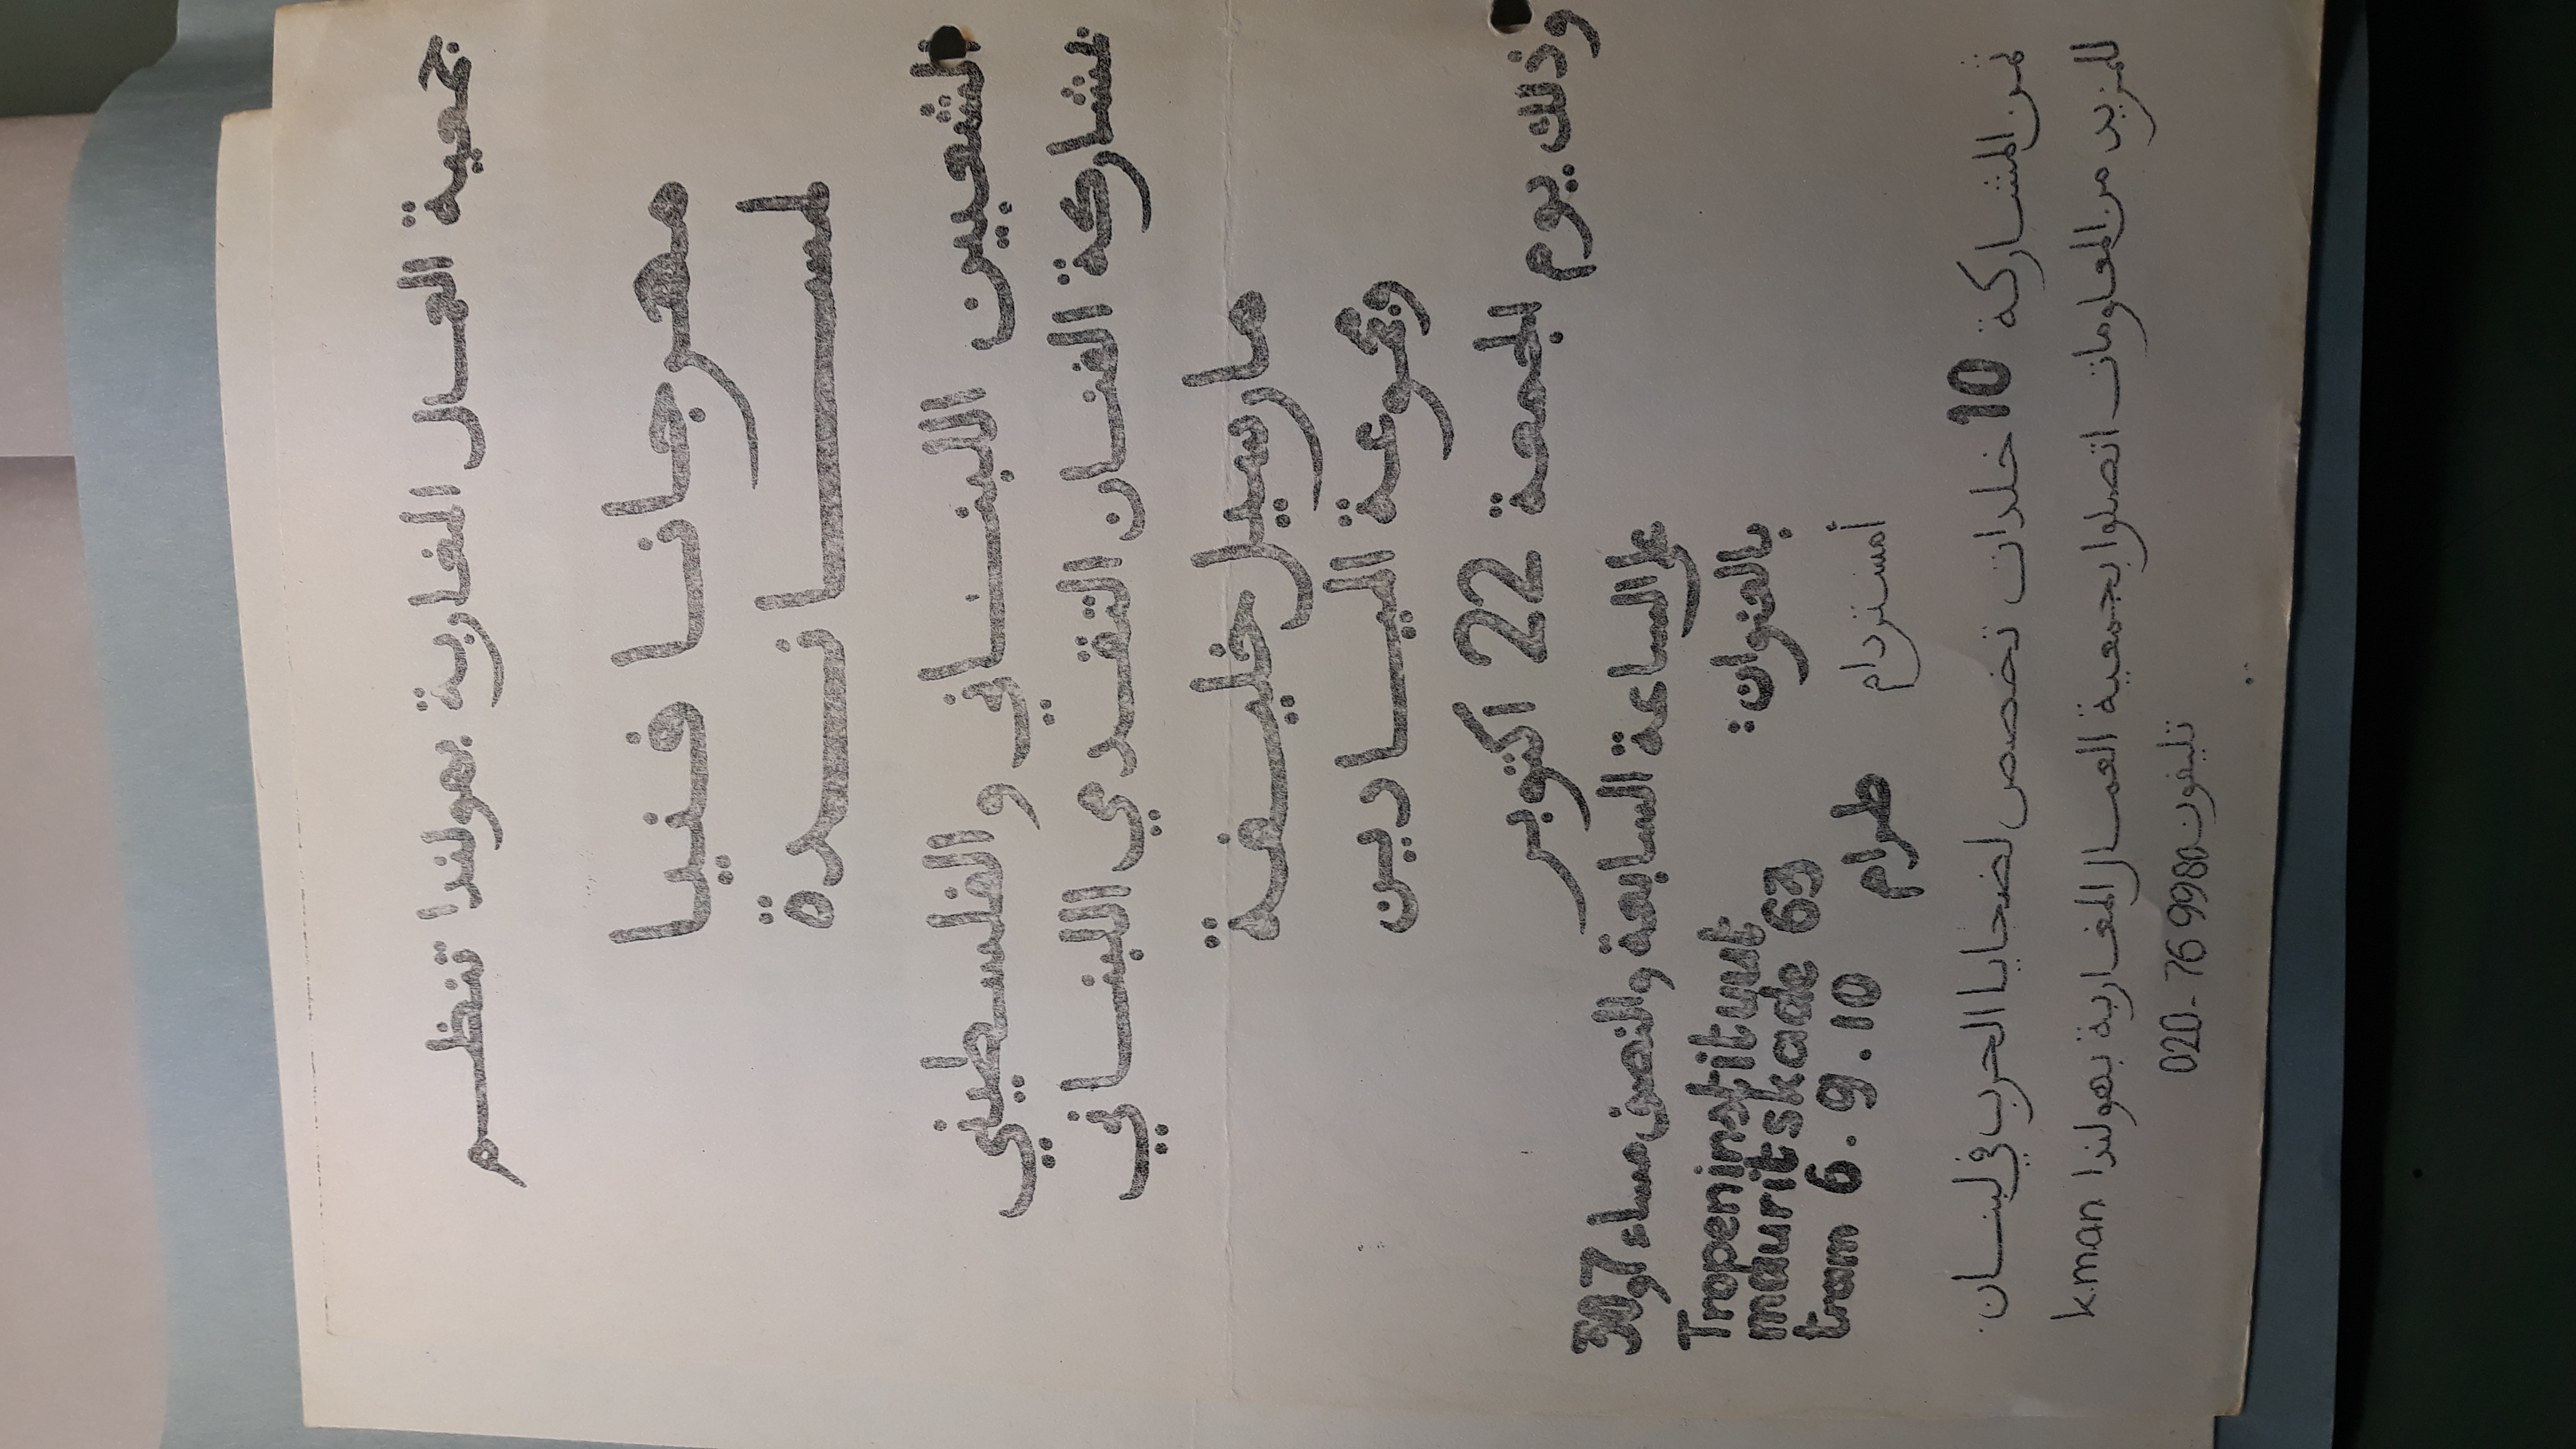 جمعية العمال المغاربة بهولندا تنظم
مهرجانا فنيا
لمساندة
الشعبين اللبناني والفلسطيني
بمشاركة الفنان التقدمي اللبناني
مارسيل خليفة
ومجموعة الميادين
وذلك يوم الجمعة 22 اكتوبر
على الساعة السابعة والنصف مساء
بالعنوان:
Tropeninstituut
mauritskade 63
tram 6.9.10 طرام
أمستردام
ثمن المشاركة 10 خلدات تخصص لضحايا الحرب في لبنان.
للمزيد من المعلومات اتصلوا بجمعية العمال المغاربة بهولندا kman
تليفون 020-769980